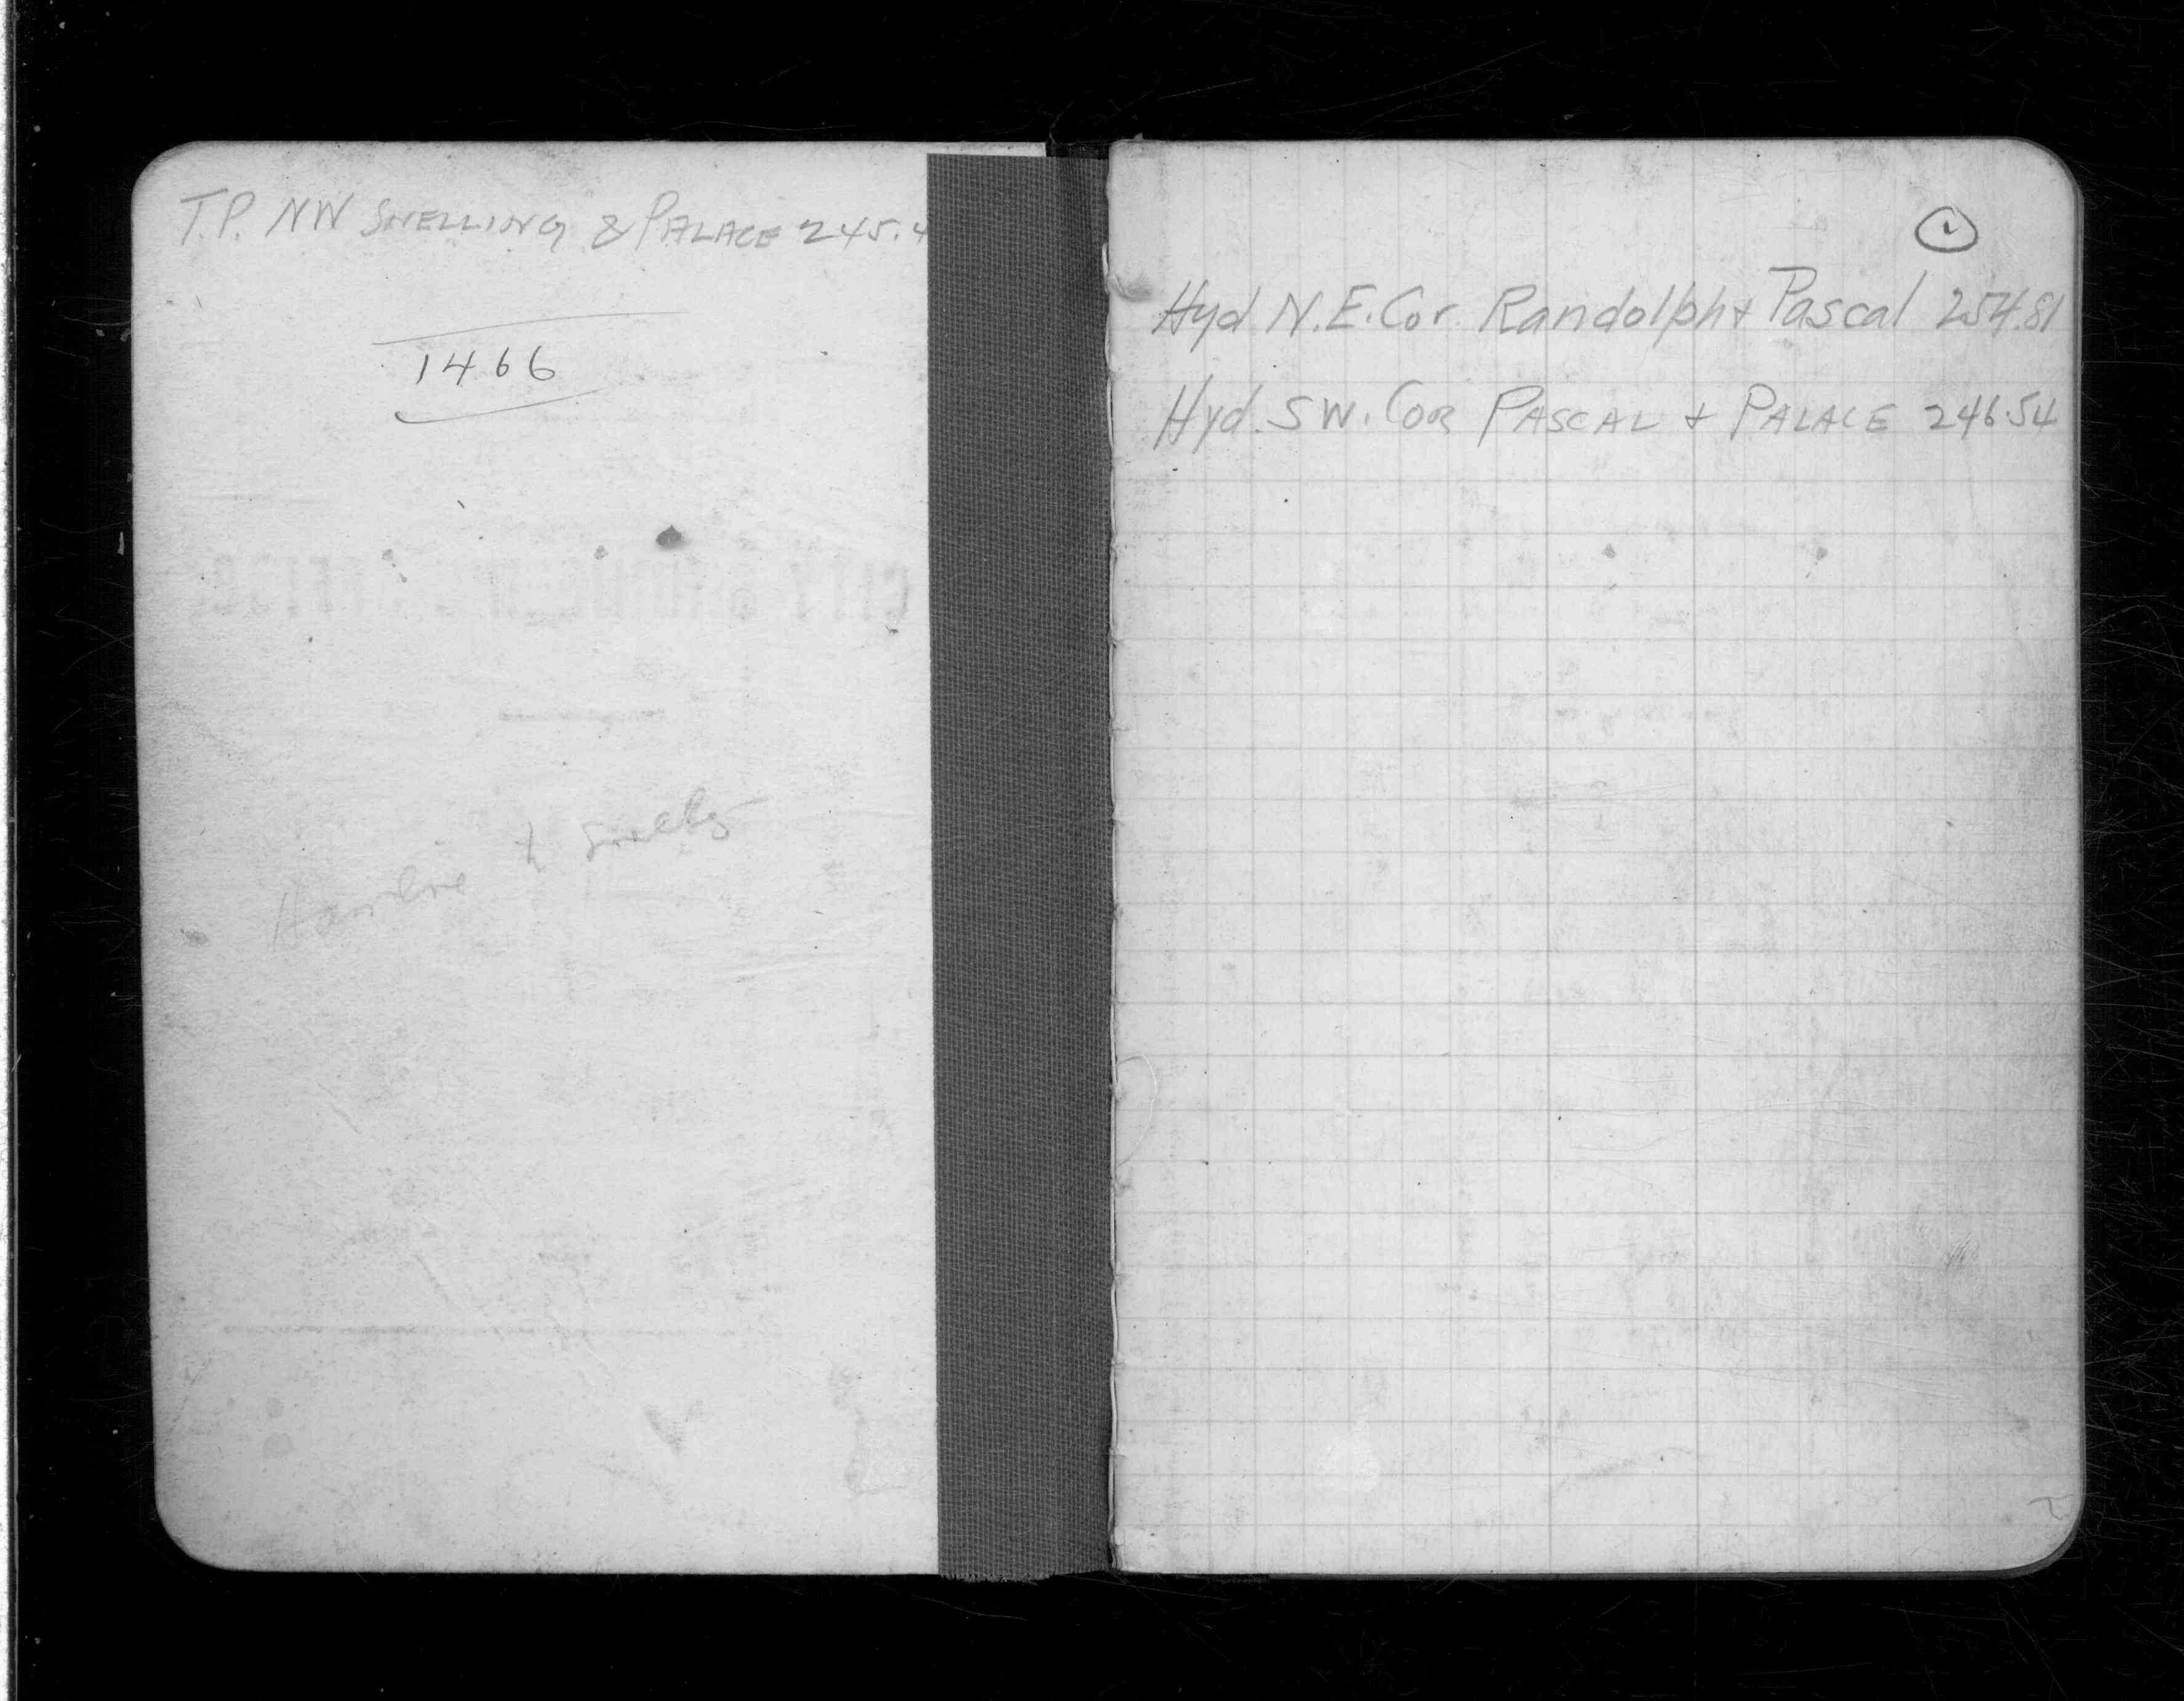 T.P. NW SNELLING & PALACE 245.4
1466
Hamline & Snelling
1
Hyd N.E. Cor. Randolph & Pascal 254.81
Hyd. SW. COR PASCAL & PALACE 246.54